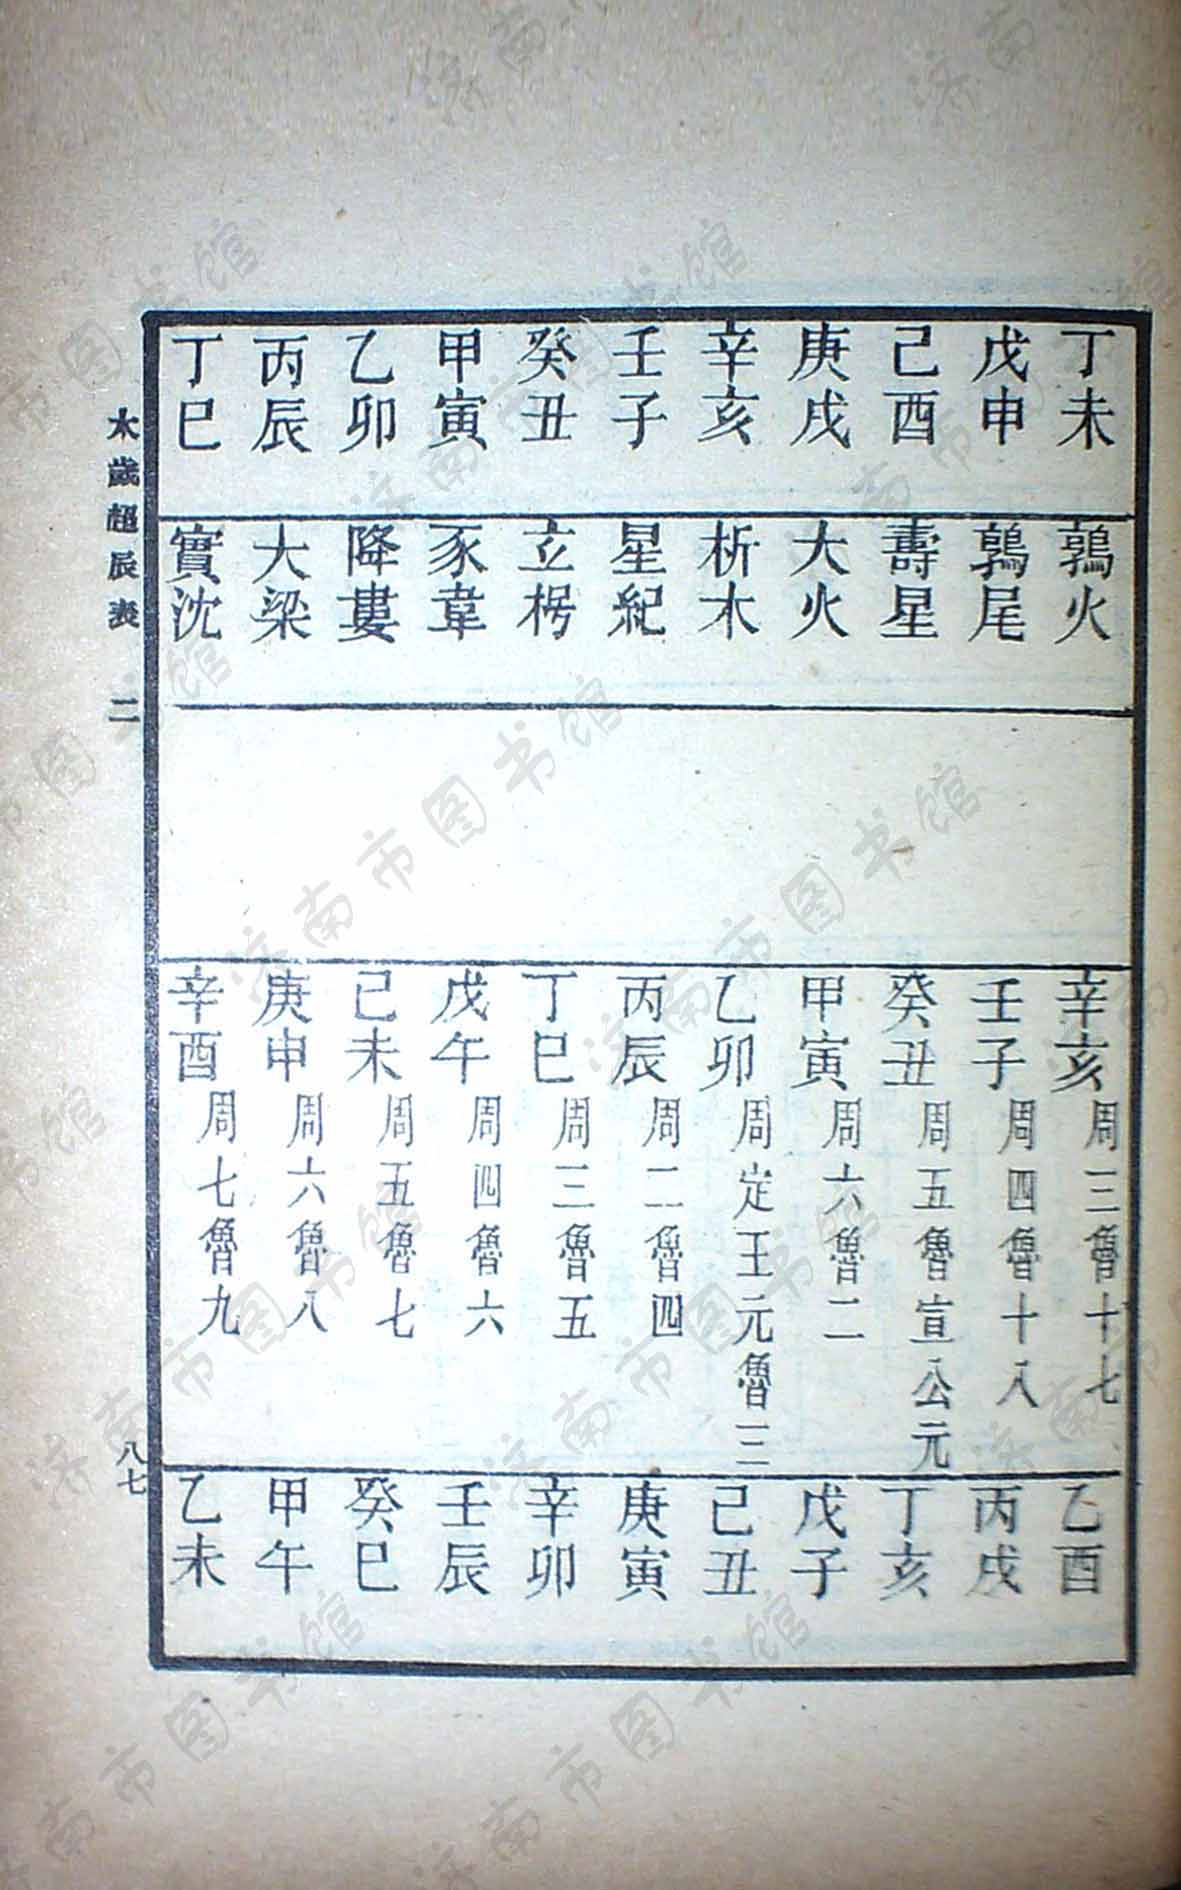 丁未 鶉火 辛亥 周三魯十七 乙酉
戊申 鶉尾 壬子 周四魯十八 丙戌
己酉 壽星 癸丑 周五魯宣公元 丁亥
庚戌 大火 甲寅 周六魯二 戊子
辛亥 析木 乙卯 周定王元魯三 己丑
壬子 星紀 丙辰 周二魯四 庚寅
癸丑 立枵 丁巳 周三魯五 辛卯
甲寅 豕韋 戊午 周四魯六 壬辰
乙卯 降婁 己未 周五魯七 癸巳
丙辰 大梁 庚申 周六魯八 甲午
丁巳 實沈 辛酉 周七魯九 乙未
太歲超辰表 二
八七
济南市图书馆